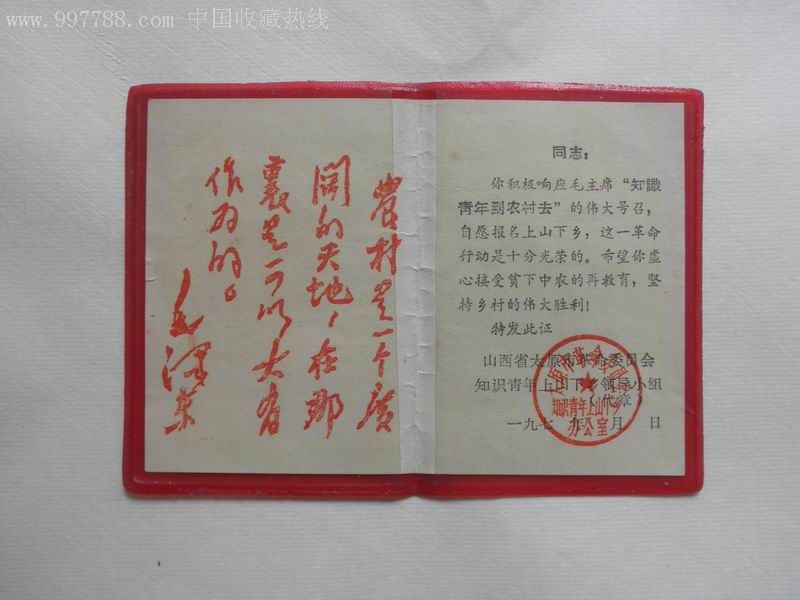 www.997788.com 中国收藏热线
农村是一个广
阔的天地，在那
裏是可以大有
作为的。
毛泽东
同志：
你积极响应毛主席“知識
青年到农村去”的伟大号召，
自愿报名上山下乡，这一革命
行动是十分光荣的。希望你虚
心接受贫下中农的再教育，坚
持乡村的伟大胜利！
特发此证
山西省太原市革命委员会
知识青年上山下乡领导小组
（代章）
一九七 年 月 日
知识青年上山下乡
办公室